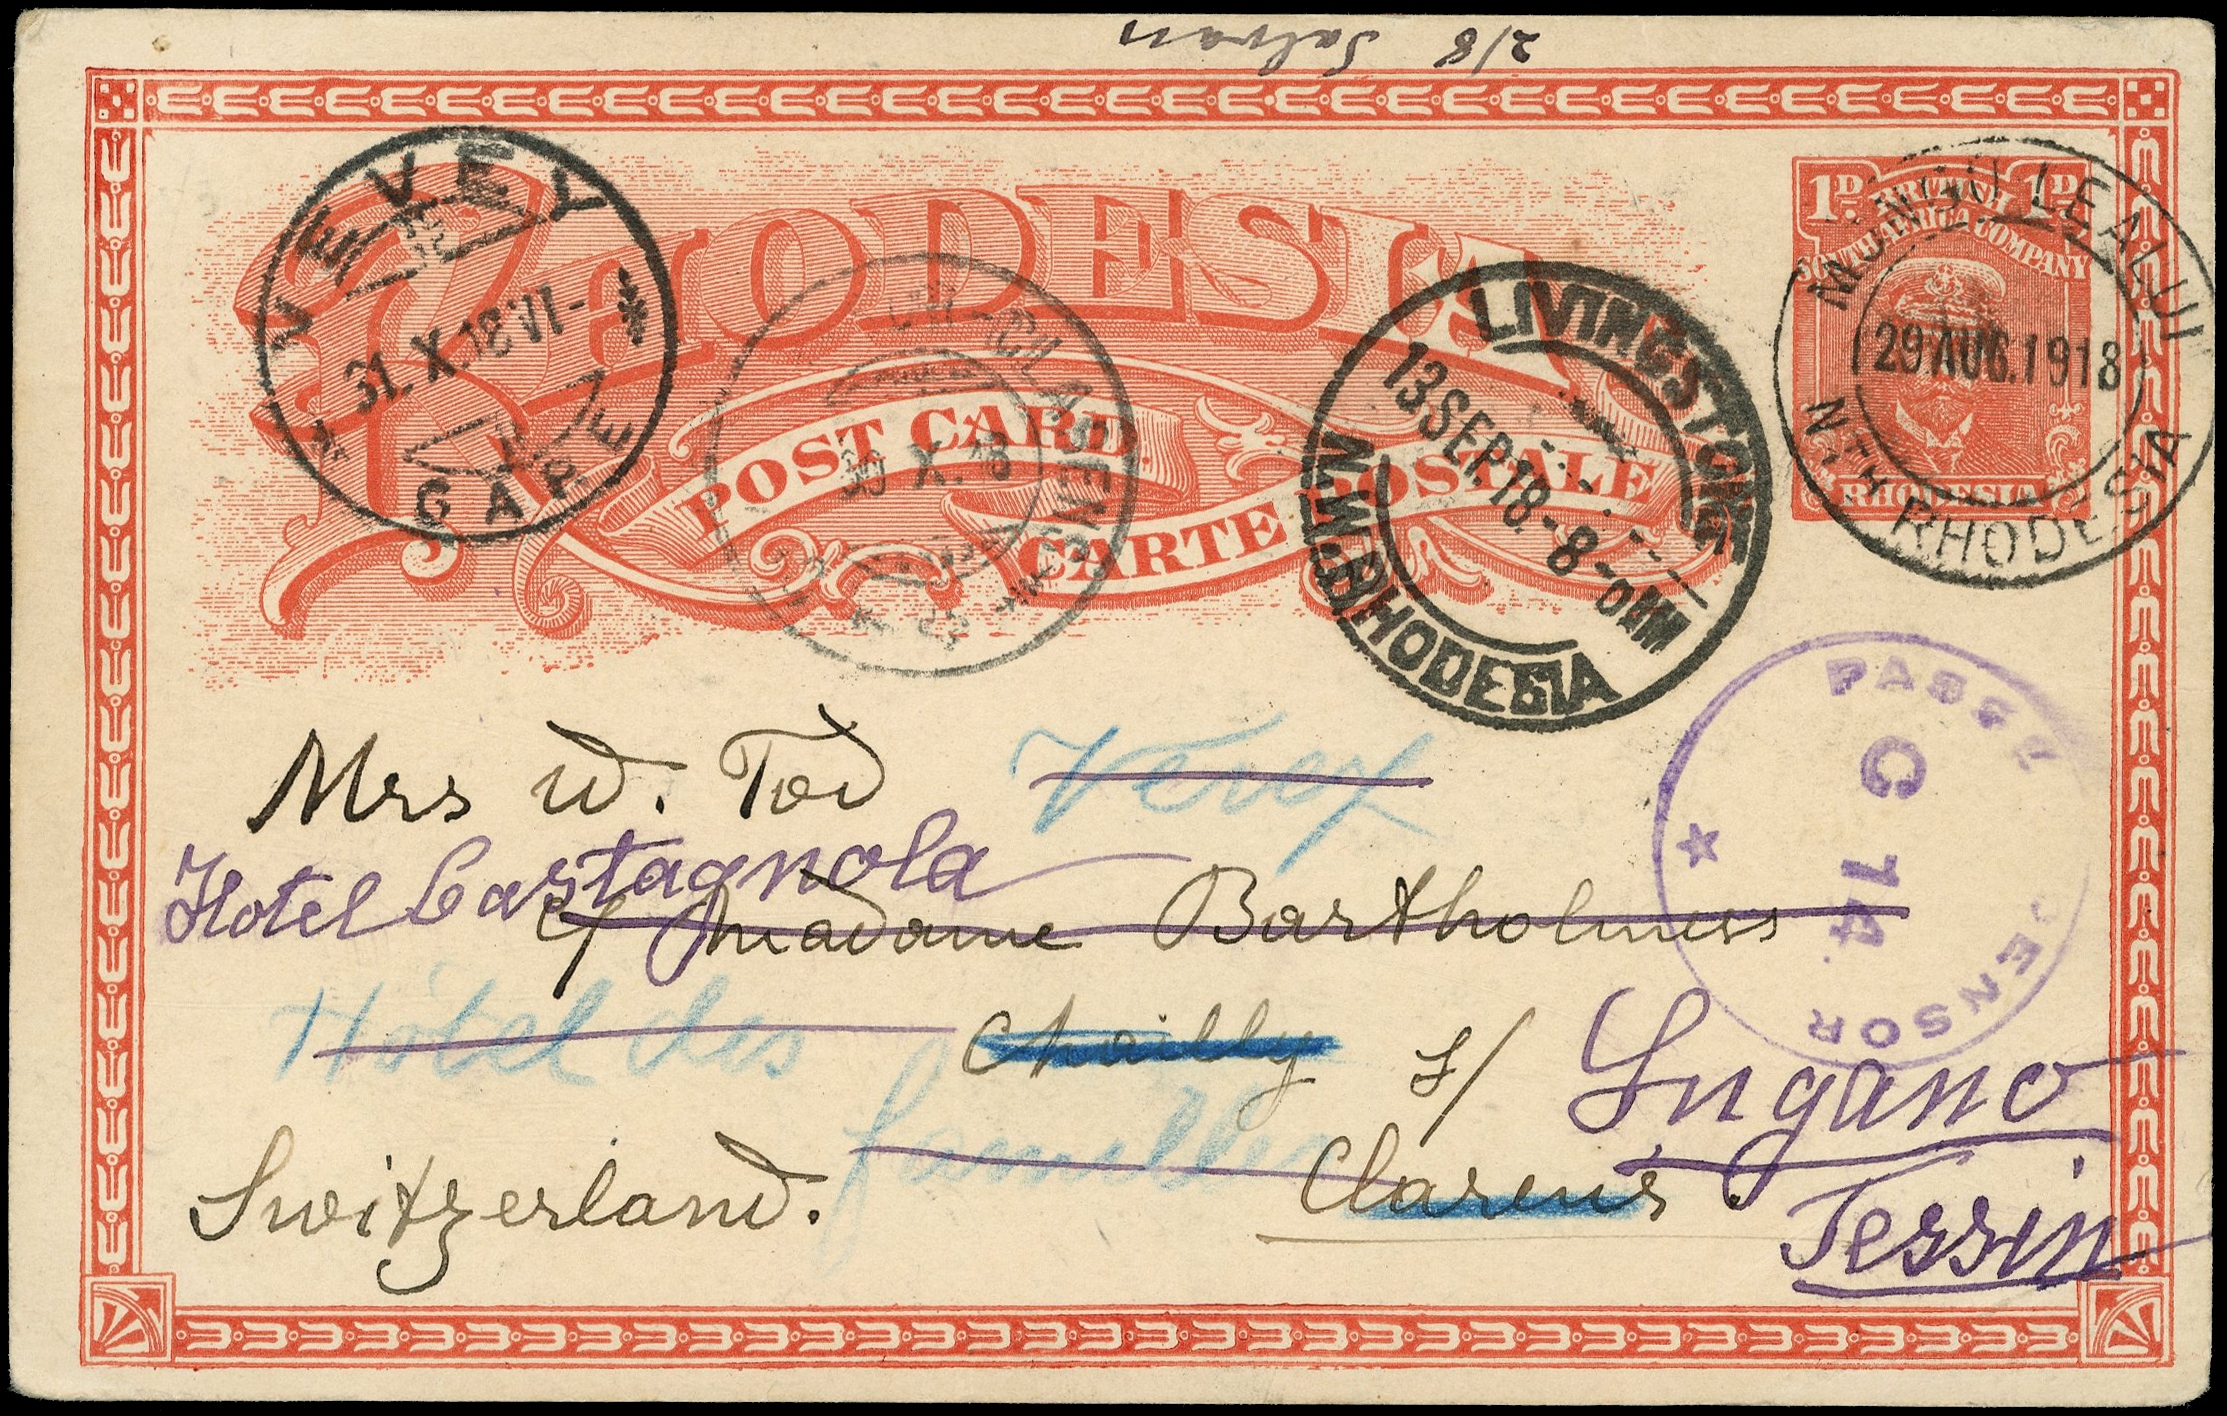 2/8 Salvan
RHODESIA
POST CARD.
CARTE POSTALE
1D. 1D.
BRITISH
SOUTH AFRICA COMPANY
RHODESIA
MONGU LEALUI
29 AUG. 1918
NTH RHODESIA
VEVEY
31. X. 18 VI-
GARE
CLARENS
30 X. 18
LIVINGSTONE
13 SEP. 18 - 8
N.W. RHODESIA
PASSE
C
14.
CENSOR
Mrs W. Tod Vevey
Hotel Castagnola
c/ Madame Bartholmess
Hôtel des
Chailly s/ Lugano
familles
Switzerland. Clarens.
Tessin